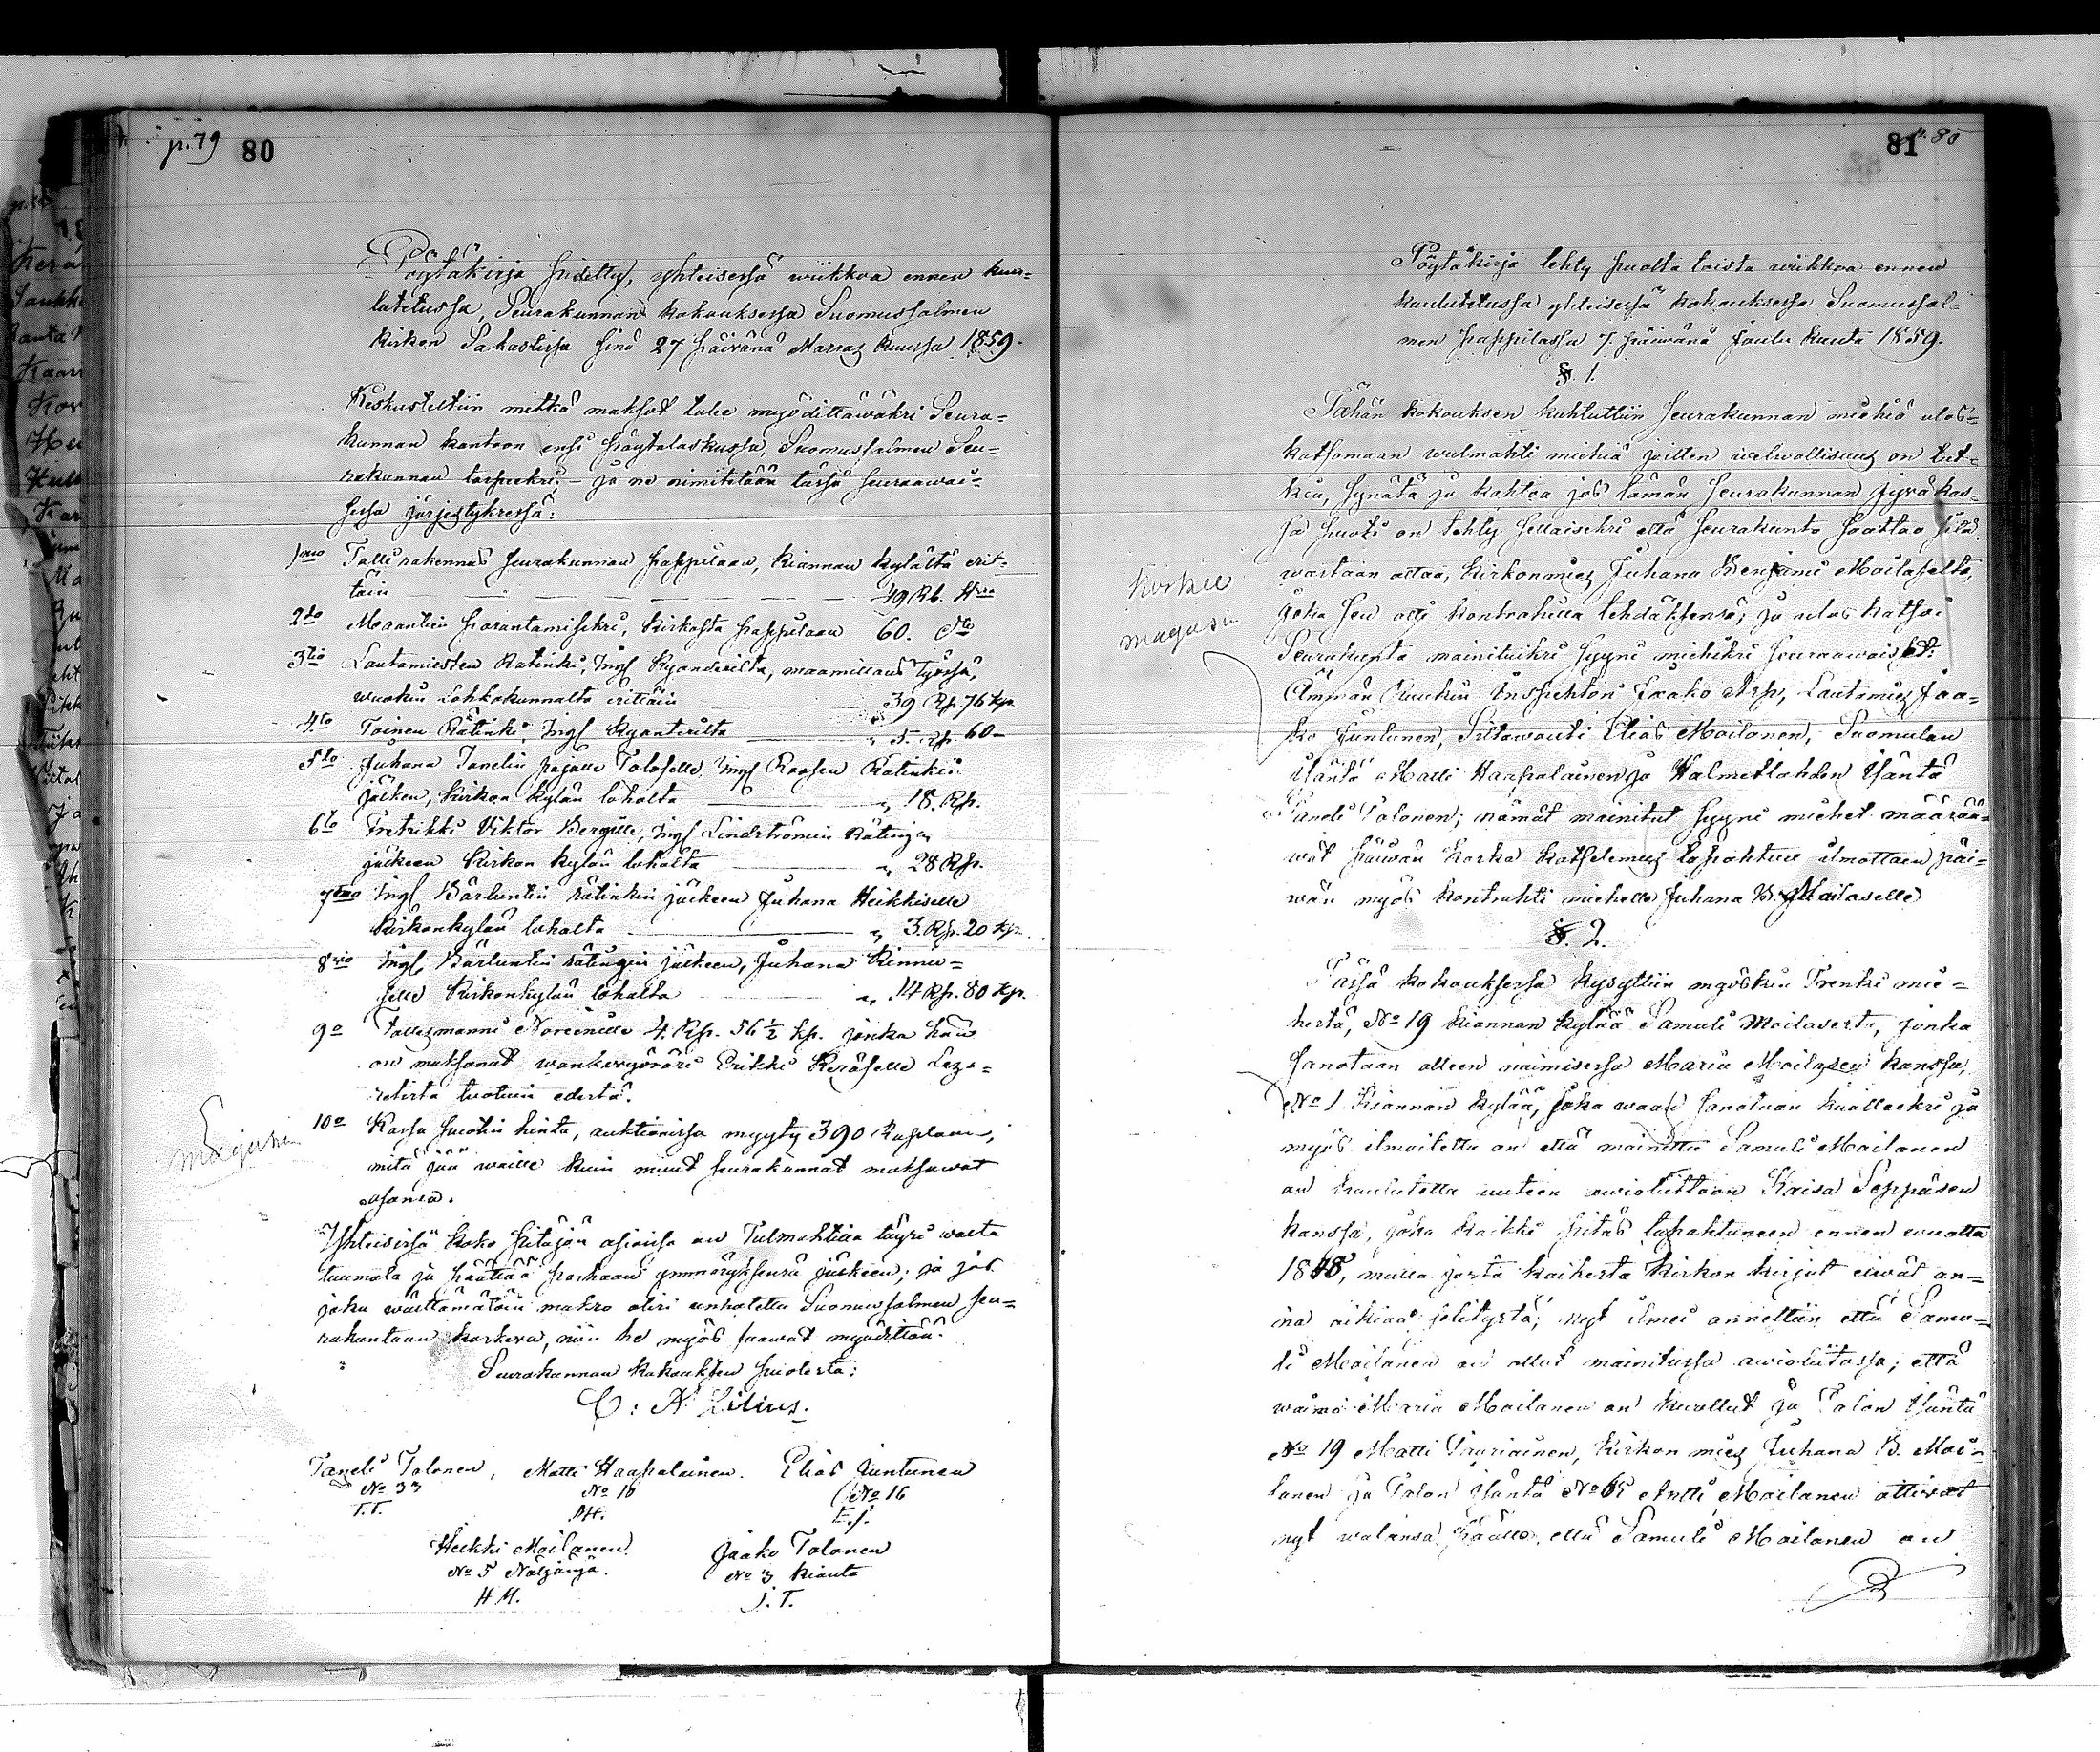 p. 79 80
Pöytäkirja pidetty, yhteisessä wiikkoa ennen kuu-
lutetussa, Seurakunnan kokouksessa Suomussalmen
kirkon Sakastissa sinä 27 päivänä Marras kuussa 1859.
Keskusteltiin mitkä maksot tulee myödittäwäksi Seura-
kunnan kantoon ensi pöytälaskussa, Suomussalmen Seu-
rakunnan tarpeeksi. – ja ne nimitetään tässä seuraawai-
sessa järjestyksessä:
1mo Talli rakennus seurakunnan pappilaan, Kiannan kylältä erit-
täin — — — — — — 49 Rb. Hra
2do Maantien parantamiseksi, Kirkosta pappilaan 60. dto
3tio Lautamiesten Ratinki, Ingl Kyanderilta, maamittaus työssä,
wuokin Lohkokunnalta erittäin 39 Rp. 76 kp.
4to Toinen Rätinki, Ingl Kyanterilta — „ 5. Rp. 60–
5to Juhana Tanelin pojalle Tolaselle, Ingl Roosen Ratinkin
jälken, Kirkon kylän loholta — „ 18. Rp.
6to Fretrikki Viktor Bergille, Ingl Lindströmin Rätingin
jälkeen Kirkon kylän loholta — „ 28 Rp.
7mo Ingl Bärluntin rätinkin jälkeen Juhana Heikkiselle
Kirkonkylän loholta — „ 3. Rp. 20 kp.
8vo Ingl Bärluntin rätingin jälkeen, Juhana Kinnu-
selle Kirkonkylän loholta — „ 14 Rp. 80 kp.
9o Fallesmanni Noreinille 4. Rp. 56 ½ kp. jonka hän
on maksanut wankarynäri Erikki Keräselle Laza-
retista tuotuin edestä.
Magasin
10o Kassa puotin hinta, auktionissa myyty 390 Ruplaan,
mitä jää waille kuin muut seurakunnat maksawat
osansa.
Yhteisissä koko pitäjän asioissa on Tulmahtilla täysi walta
tuumata ja päättää parhaan ymmäryksensä jälkeen; ja jos
joku wälttämätöin makso olisi unhotettu Suomussalmen seu-
rakuntaan koskewa, niin he myös saawat myödittää.
Seurakunnan kokouksen puolesta:
C: A Lilius.
Taneli Tolonen, Matti Haapalainen. Elias Juntunen
No 33 No 16 No 16
T.T. M.H. E.J.
Heikki Moilanen. Jaako Tolonen
No 5 Näljänjä. No 3 Kianta
H M. J. T.
81 p. 80
Pöytäkirja tehty puolta toista wiikkoa ennen
kuulutetussa yhteisessä kokouksessa Suomussal-
men pappilassa 7. päiwänä Joulu kuuta 1859.
§. 1.
Tähän kokouksen kuhtuttiin seurakunnan miehiä ulos-
katsomaan wulmahti miehiä joitten welwollisuus on tut-
kia, synätä ja kahtoa jos tämän seurakunnan jyvä kas-
sa puoti on tehty sellaiseksi että seurakunta saattaa sitä
wastaan ottaa, kirkonmies Juhana Benjami Moilaselta,
joka sen otti kontrahilla tehdäksensä; ja ulos katsoi
Seurakunta mainituiksi syyni miehiksi seuraawaiset:
korkee
magasin
Ämmän Ruukin Inspehtori Jaako Arp, Lautamies Jaa-
ko Juntunen, Siltawouti Elias Moilanen, Suomulan
Isäntä Matti Haapalainen ja Halmetlahden Isäntä
Taneli Tolonen; nämät mainitut syyni miehet määrää-
wät päiwän koska katselemus tapahtuu ilmottaen päi-
wän myös kontrahti miehelle Juhana B. Moilaselle
§. 2.
Tässä kokouksessa kysyttiin myöskin Trenki mie-
hestä, No 19 Kiannan kylää Samuli Moilasesta, jonka
sanotaan olleen naimisessa Maria Moilasen kanssa,
No 1 Kiannan kylää, joka waan sanotaan kuolleeksi ja
myös ilmoitettu on että mainittu Samuli Moilanen
on kuulutettu uuteen awioliittoon Kaisa Seppäsen
kanssa, joka kaikki pitäs tapahtuneen ennen wuotta
1848, mutta josta kaikesta Kirkon kirjat eiwät an-
na oikiaa selitystä; nyt ilmi annettiin että Samu-
li Moilanen on ollut mainitussa awioliitossa; että
waimo Maria Moilanen on kuollut ja Talon Isäntä
No 19 Matti Tauriainen, Kirkon mies Juhana B. Moi-
lanen ja Talon Isäntä No 65 Antti Moilanen ottiwat
nyt walansa päälle, että Samuli Moilanen on